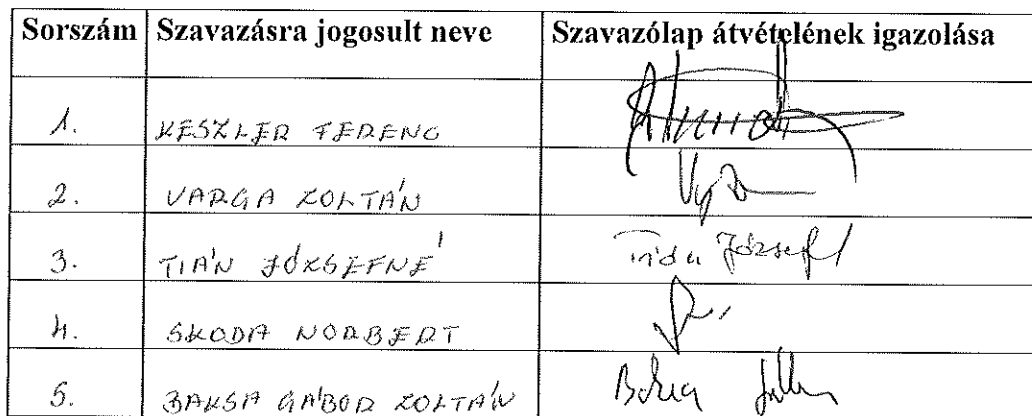 Sorszám Szavazásra jogosult neve Szavazólap átvételének igazolása
1. KESZLER FERENC
2. VARGA ZOLTÁN
3. TIÁN JÓZSEFNÉ József
4. SKODA NORBERT
5. BAKSA GÁBOR ZOLTÁN